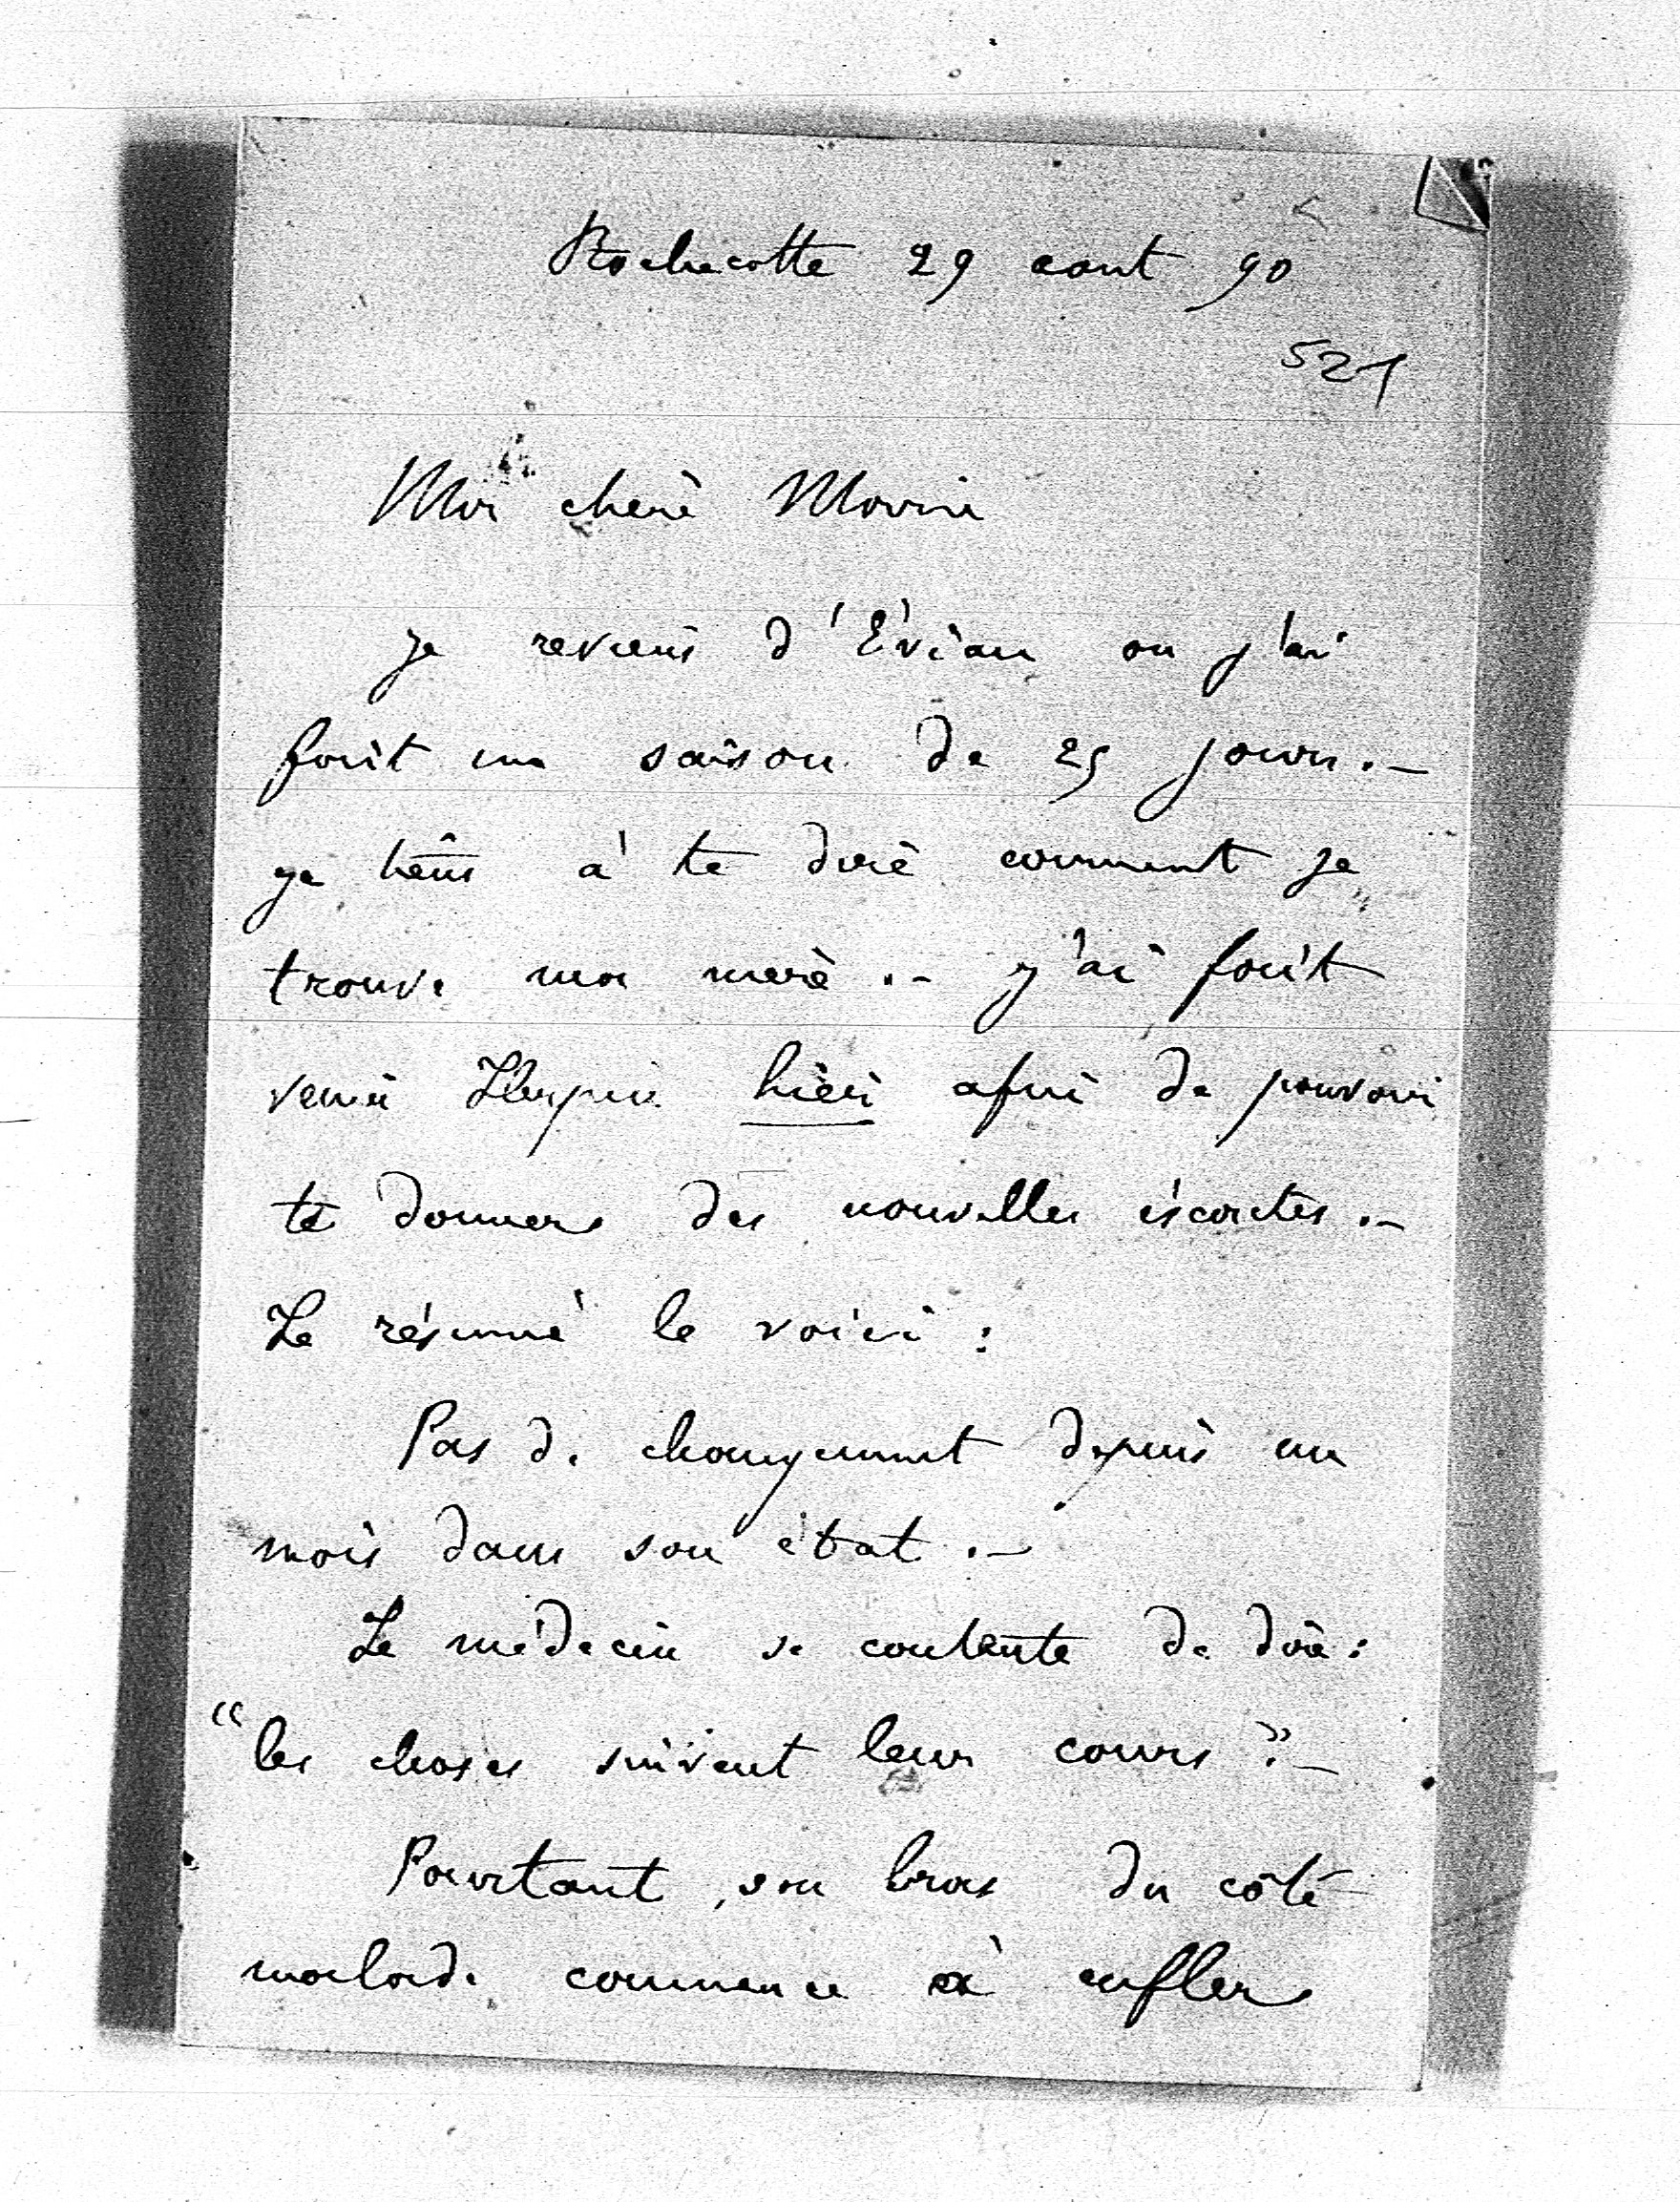 Rochecotte 29 aout 90
521
Ma chere Marie
Je reviens d'Evian ou j'ai
fait une saison de 25 jours.—
Je tiens à te dire comment je
trouve ma mere.— J'ai fait
venir hier afin de pouvoir
te donner des nouvelles éxactes.—
Le résumé le voici :
Pas de changement depuis un
mois dans son état.—
Le médecin se contente de dire :
"les choses suivent leur cours".—
Pourtant, son bras du côté
malade commence à enfler